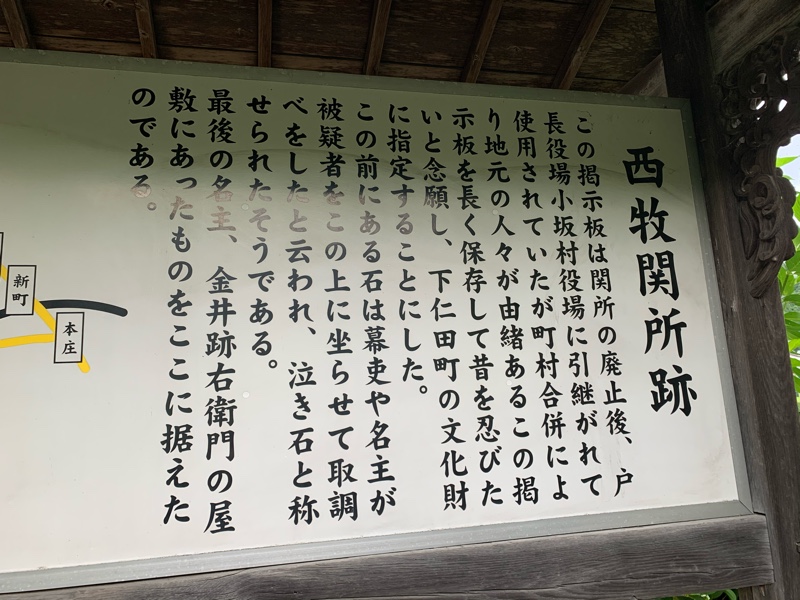 西牧関所跡
この掲示板は関所の廃止後、戸
長役場小坂村役場に引継がれて
使用されていたが町村合併によ
り地元の人々が由緒あるこの掲
示板を長く保存して昔を忍びた
いと念願し、下仁田町の文化財
に指定することにした。
この前にある石は幕吏や名主が
被疑者をこの上に坐らせて取調
べをしたと云われ、泣き石と称
せられたそうである。
最後の名主、金井跡右衛門の屋
敷にあったものをここに据えた
のである。
本庄
新町